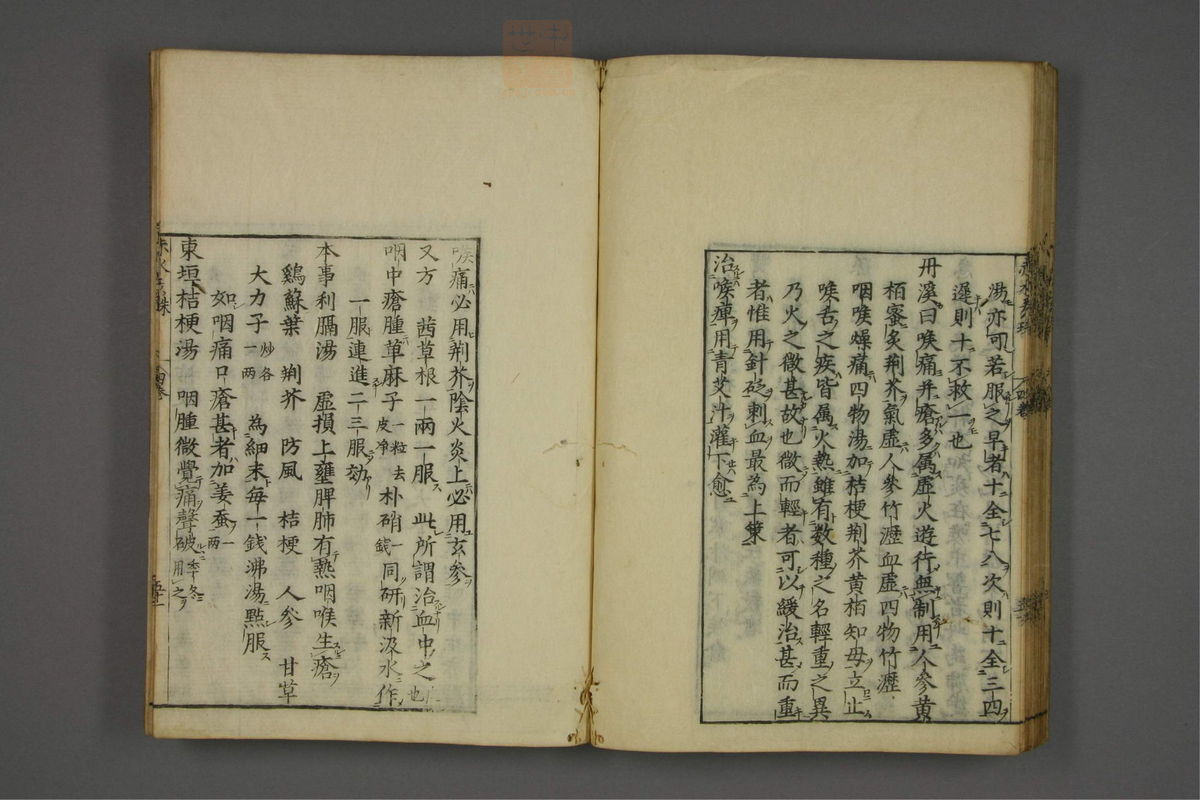 湯亦可若服之早者十全七八次則十全三四
遲則十不救一也
丹溪曰喉痛并瘡多属虛火遊行無制用人參黄
栢蜜炙荆芥氣虛人參竹瀝血虛四物竹瀝
咽喉燥痛四物湯加桔梗荆芥黄栢知母立止
喉舌之疾皆属火熱雖有数種之名輕重之異
乃火之微甚故也微而輕者可以緩治甚而重
者惟用針砭刺血最為上策
治喉痺用青艾汁灌下愈
喉痛必用荆芥陰火炎上必用玄參
又方 茜草根一兩一服 此所謂治血中之
咽中瘡腫草麻子一粒去皮净朴硝一錢同研新汲水作
一服連進二三服効
本事利膈湯 虛損上壅脾肺有熱咽喉生瘡
鷄蘇葉 荆芥 防風 桔梗 人參 甘草
大力子炒各一两 為細末毎一錢沸湯點服
如咽痛口瘡甚者加姜蚕一两
東垣桔梗湯 咽腫微覺痛聲破季冬用之